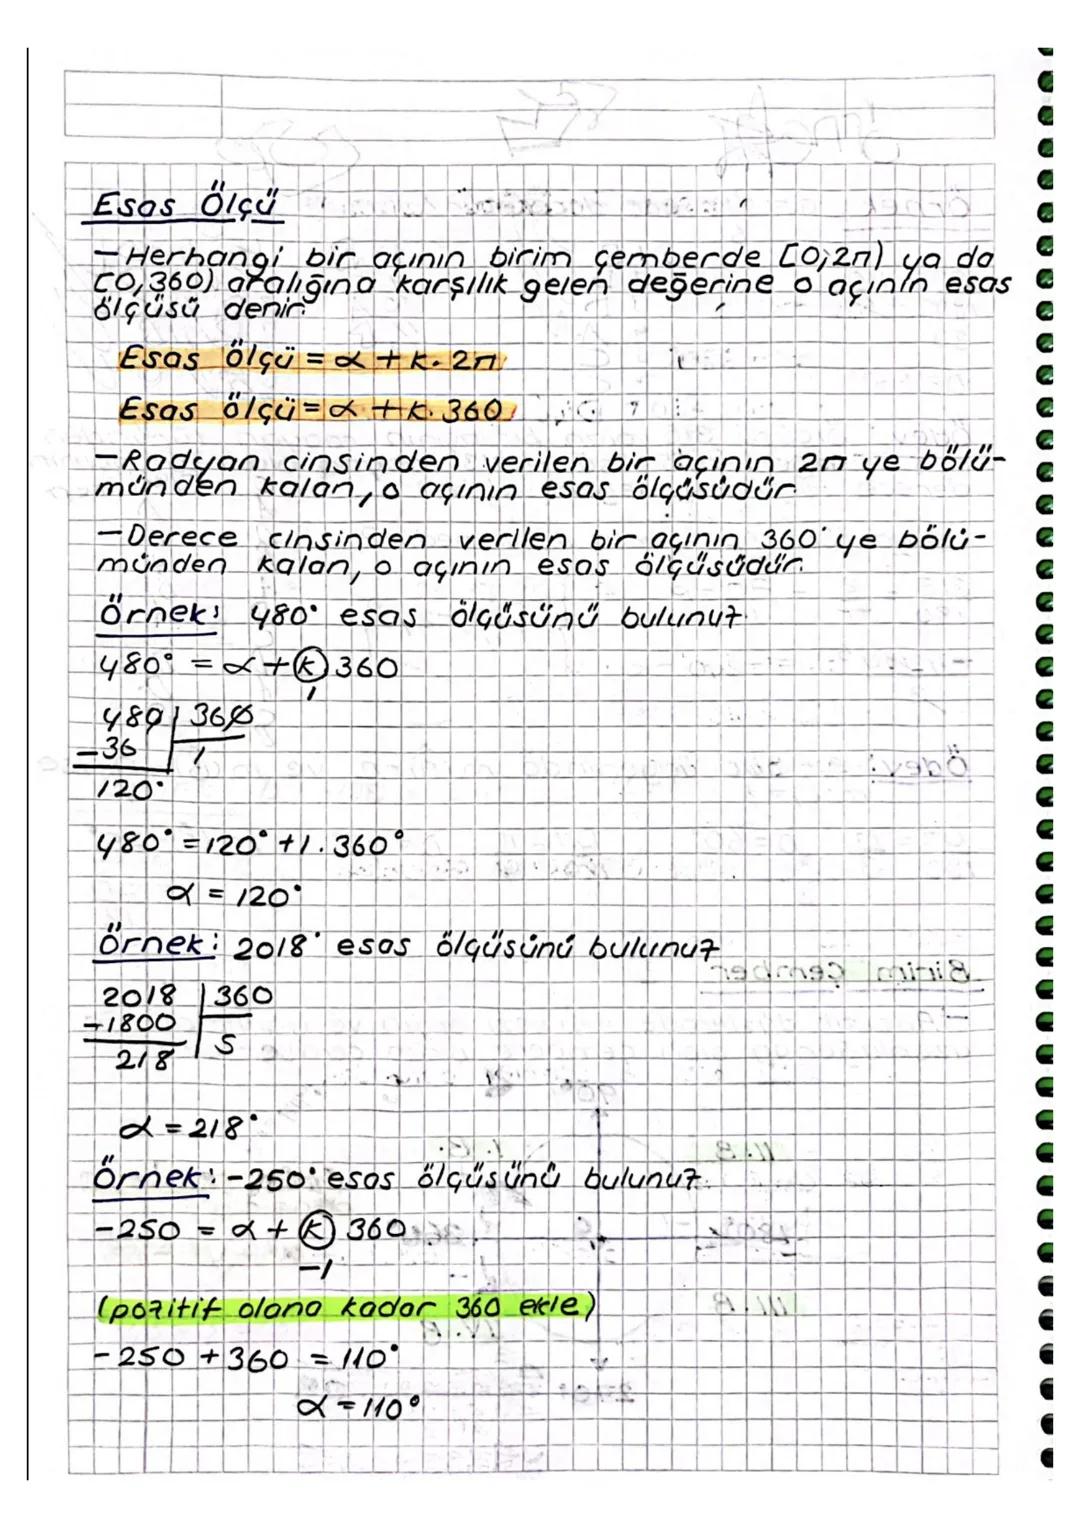 Esas Ölçü
-Herhangi bir açının birim çemberde [0,2π) ya da
[0,360) aralığına karşılık gelen değerine o açının esas
ölçüsü denir.
Esas ölçü = α + k. 2π
Esas ölçü = α + k. 360
-Radyan cinsinden verilen bir açının 2π ye bölü-
münden kalan, o açının esas ölçüsüdür.
-Derece cinsinden verilen bir açının 360° ye bölü-
münden kalan, o açının esas ölçüsüdür.
Örnek: 480° esas ölçüsünü bulunuz.
480° = α + k 360
1
480 360
-36 1
120°
480° = 120° + 1. 360°
α = 120°
Örnek: 2018° esas ölçüsünü bulunuz
2018 360
-1800 5
218
α = 218°
Örnek: -250° esas ölçüsünü bulunuz.
-250 = α + k 360
-1
(pozitif olana kadar 360 ekle)
-250 + 360 = 110°
α = 110°